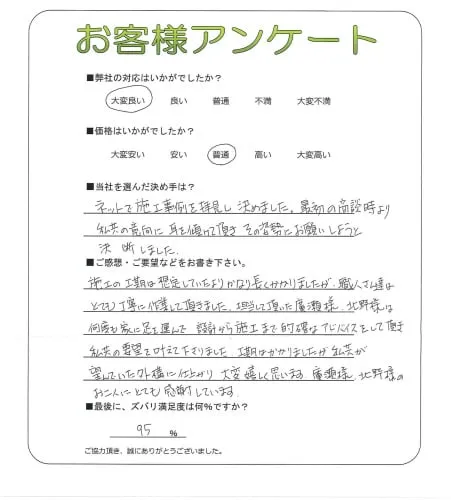 お客様アンケート
■弊社の対応はいかがでしたか？
大変良い 良い 普通 不満 大変不満
■価格はいかがでしたか？
大変安い 安い 普通 高い 大変高い
■当社を選んだ決め手は？
ネットで施工事例を拝見し決めました。最初の商談時より
私共の意向に耳を傾けて頂き その姿勢にお願いしようと
決断しました。
■ご感想・ご要望などをお書き下さい。
施工の工期は想定していたよりかなり長くかかりましたが、職人さん達は
とても丁寧に作業して頂きました。担当して頂いた廣瀬様、北野様は
何度も家に足を運んで 設計から施工まで的確なアドバイスをして頂き
私共の要望を叶えて下さりました。工期はかかりましたが私共が
望んでいた外構に仕上がり 大変嬉しく思います。廣瀬様、北野様の
お二人にとても感謝しています。
■最後に、ズバリ満足度は何%ですか？
95 %
ご協力頂き、誠にありがとうございました。